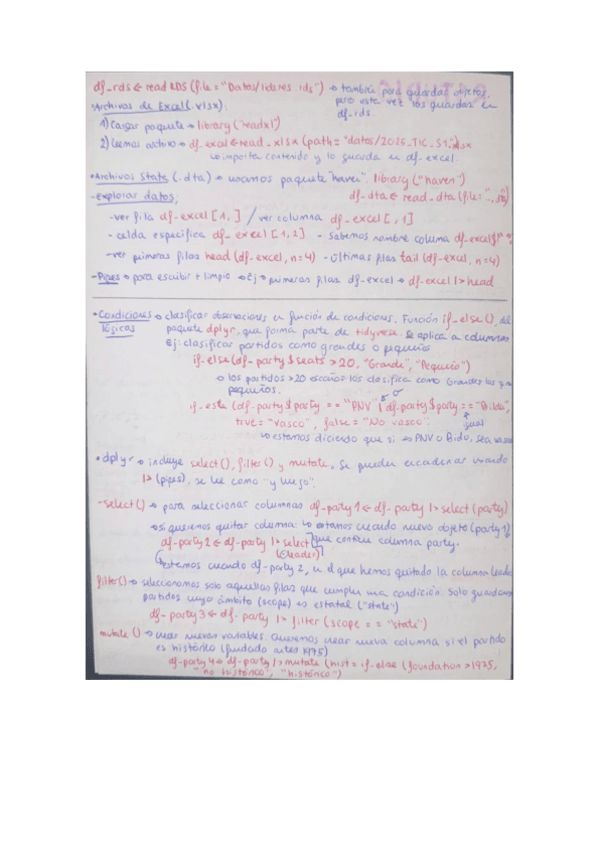 df_rds <- readRDS (file = "Datos/lideres.rds") → también para guardar objetos,
pero esta vez los guardas en
df_rds.
·Archivos de Excel (.xlsx):
1) Cargar paquete → library ("readxl")
2) Leemos archivo → df_excel <- read_xlsx (path = "datos/2026_TIC_S1".xlsx
↳ importa contenido y lo guarda en df_excel.
·Archivos Stata (.dta) → usamos paquete "haven", library ("haven")
df-dta <- read_dta (file =
-Explorar datos,
-ver fila df-excel [1, ] / ver columna df-excel [ , 1]
- celda específica df_excel [1,2] - Sabemos nombre columna df_excel$
-ver primeras filas head (df_excel, n=4) - últimas filas tail (df_excel, n=4)
-Pipes → para escribir + limpio → Ej → primeras filas df_excel → df-excel |> head
·Condiciones → clasificar observaciones en función de condiciones. Función if_else(), del
lógicas
paquete dplyr, que forma parte de tidyverse. Se aplica a columnas
Ej: clasificar partidos como grandes o pequeños
if_else (df-party$seats > 20, "Grande", "Pequeño")
→ los partidos >20 escaños los clasifica como Grandes los
pequeños.
ó
if-else (df-party$party == "PNV" | df-party$party == "Bildu",
igual
true = "vasco", false = "No vasco"
↳ estamos diciendo que si → PNV o Bildu, sea vasco
· dplyr → incluye select(), filter() y mutate. Se pueden encadenar usando
|> (pipes), se lee como "y luego".
-select() → para seleccionar columnas df-party1 <- df-party |> select (party)
→ si queremos quitar columna: ↳ estamos creando nuevo objeto (party1)
df-party2 <- df-party |> select que contiene columna party.
(-leader)
estamos creando df-party2, en el que hemos quitado la columna leader
filter() → seleccionamos solo aquellas filas que cumplen una condición. Solo guardamos
partidos cuyo ámbito (scope) es estatal ("state")
df-party3 <- df-party |> filter (scope == "state")
mutate () → crear nuevas variables. Queremos crear nueva columna si el partido
es histórico (fundado antes 1975)
df-party4 <- df-party |> mutate (hist = if-else (foundation > 1975,
"no histórico", "histórico")